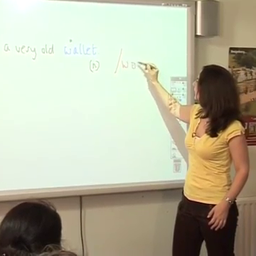 a very old wallet
(n) /wɒ